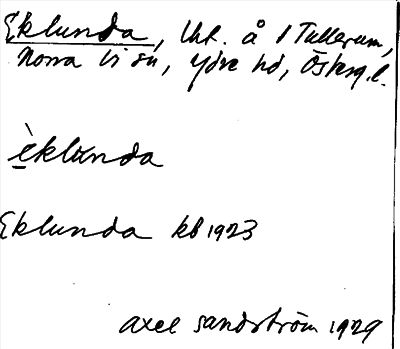 Eklunda, lht. å 1 Tullerum,
Norra Vi sn, Ydre hd, Österg. l.
èklùnda
Eklunda kb 1923
Axel Sandström 1929